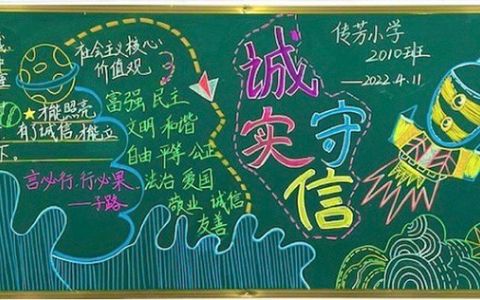 社会主义核心
价值观
富强 民主
文明 和谐
自由 平等 公正
法治 爱国
敬业 诚信
友善
才能照亮
有了诚信,才能立
下。
言必行,行必果
——子路
诚实守信
传芳小学
2010班
—2022.4.11